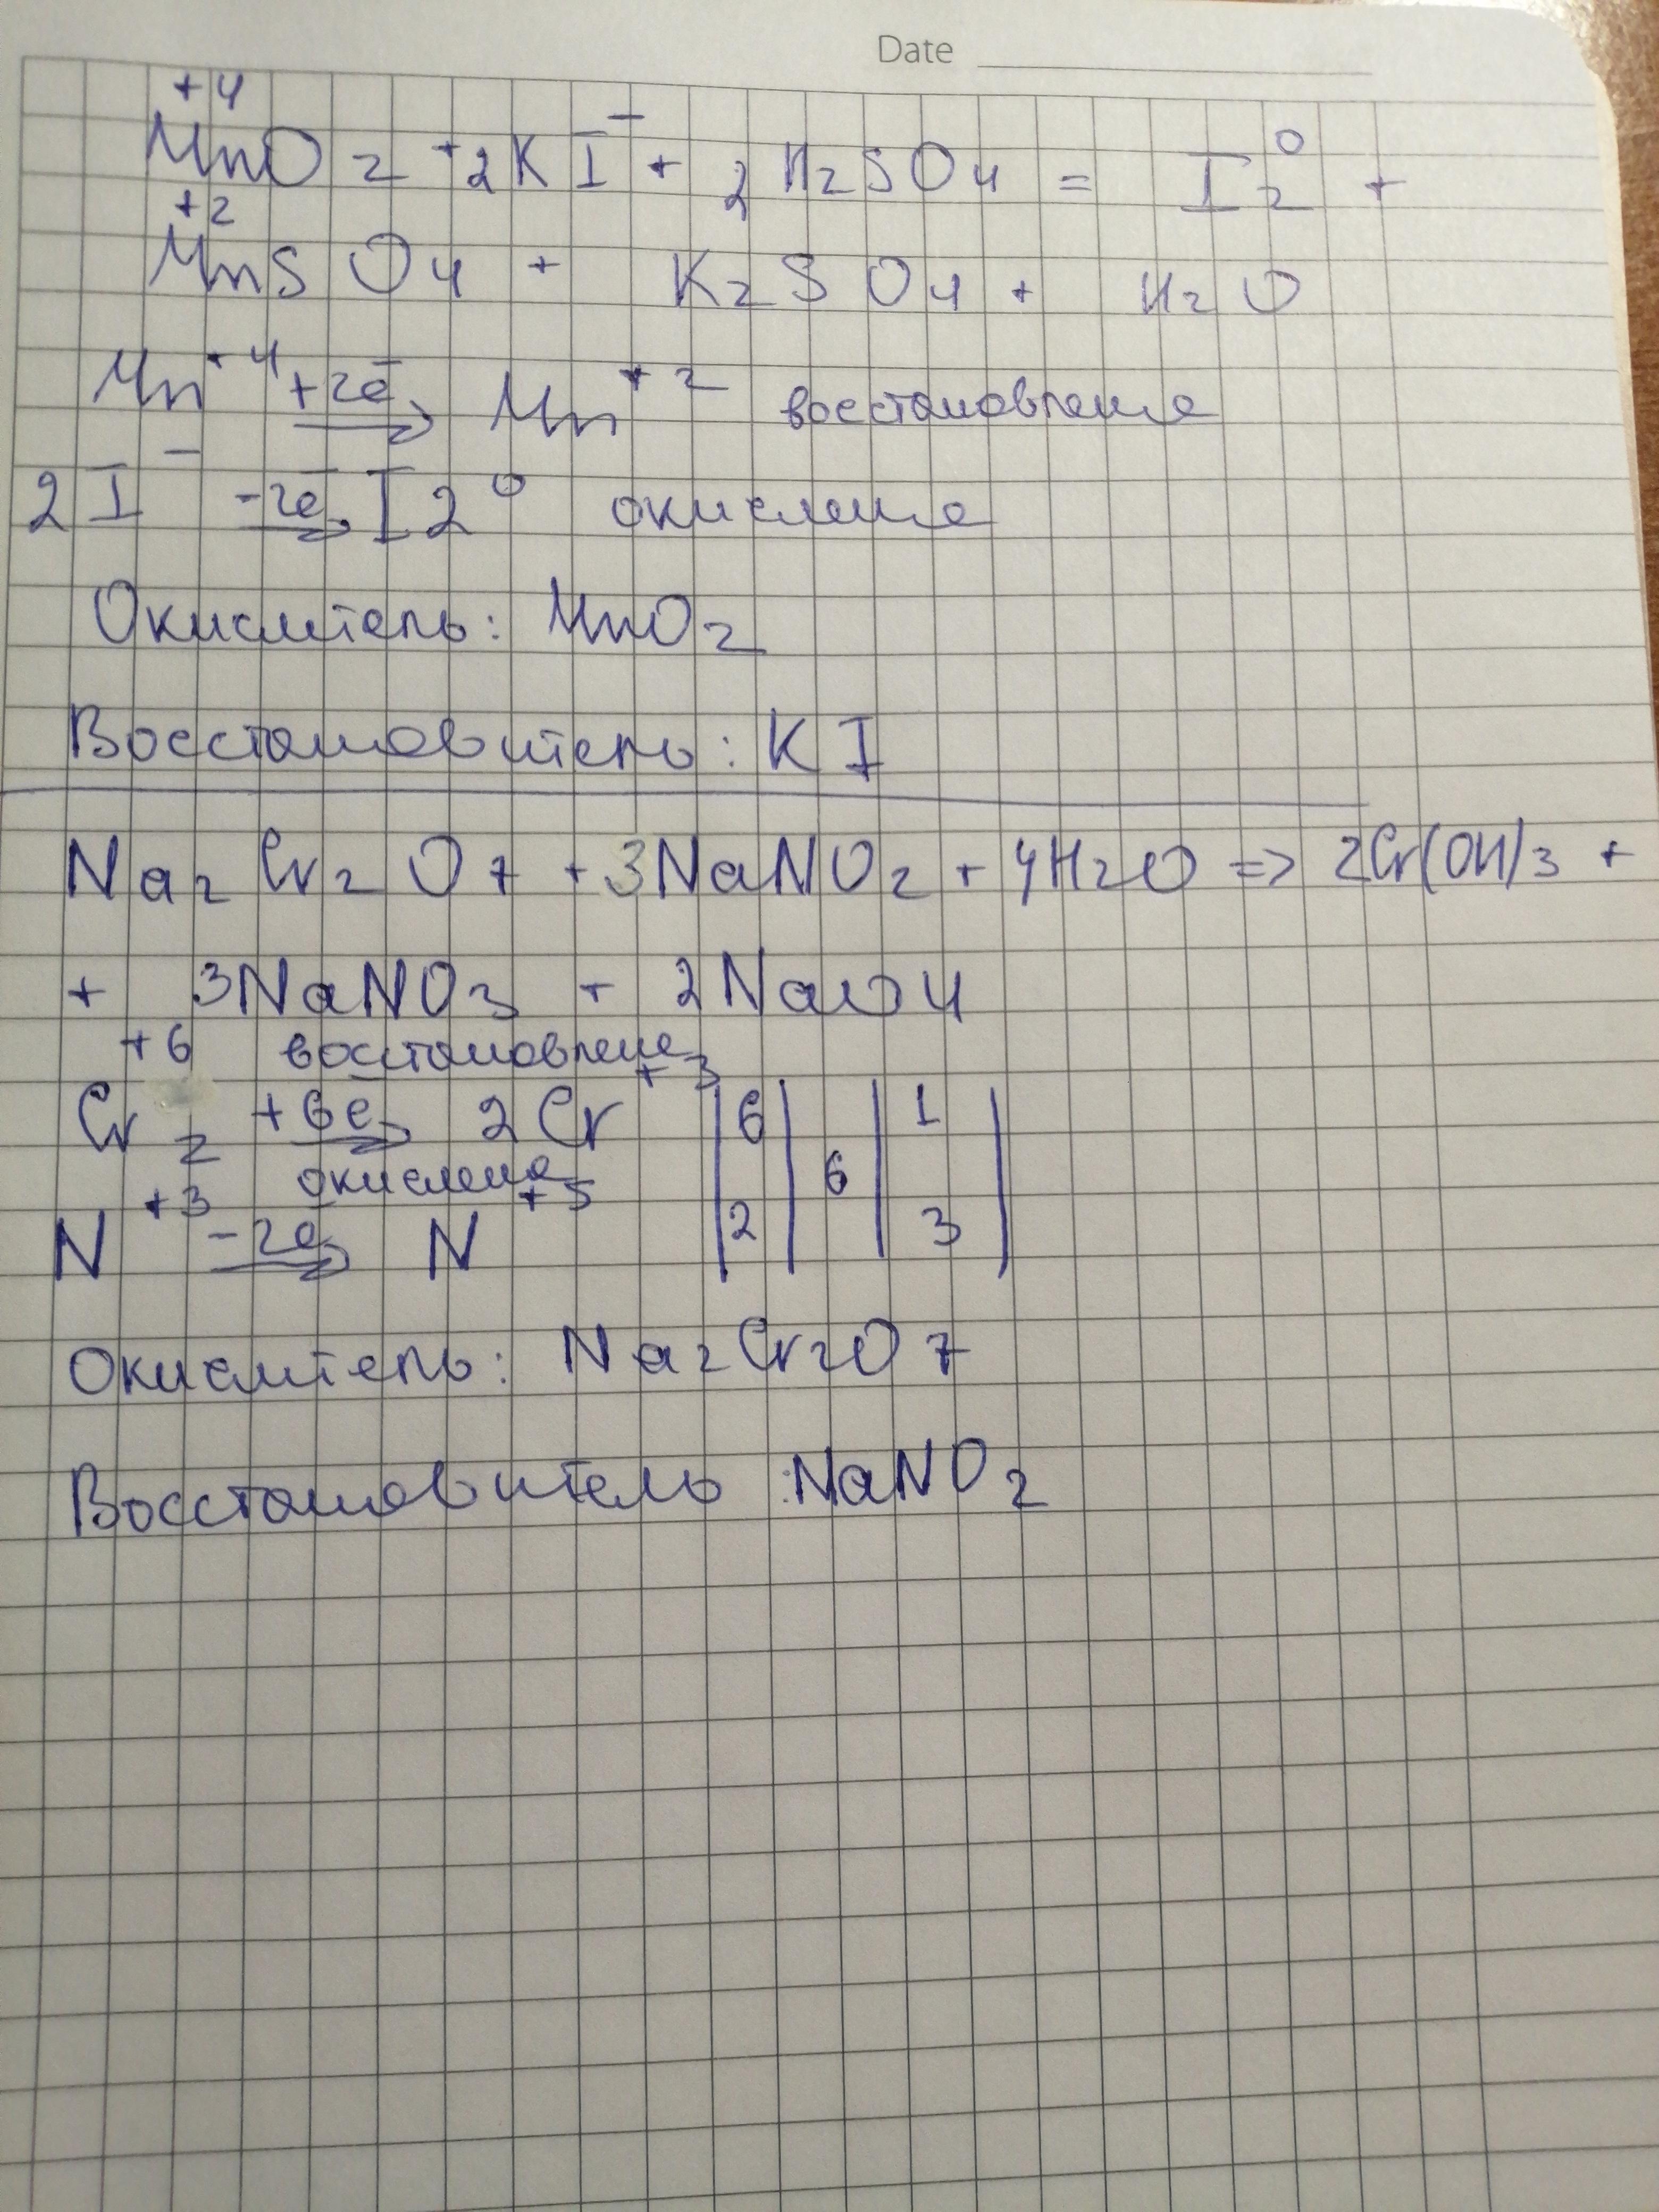 Date
+4
MnO2 + 2KI⁻ + 2H2SO4 = I2⁰ +
+2
MnSO4 + K2SO4 + H2O
Mn⁺⁴ +2ē → Mn⁺² восстановление
2I⁻ -2ē → I2⁰ окисление
Окислитель: MnO2
Восстановитель: KI
Na2Cr2O7 + 3NaNO2 + 4H2O => 2Cr(OH)3 +
+ 3NaNO3 + 2NaOH
+6 восстановление +3
Cr2 +6e → 2Cr | 6 | | 1 |
окисление 6
+3 +5
N -2e → N | 2 | | 3 |
Окислитель: Na2Cr2O7
Восстановитель: NaNO2